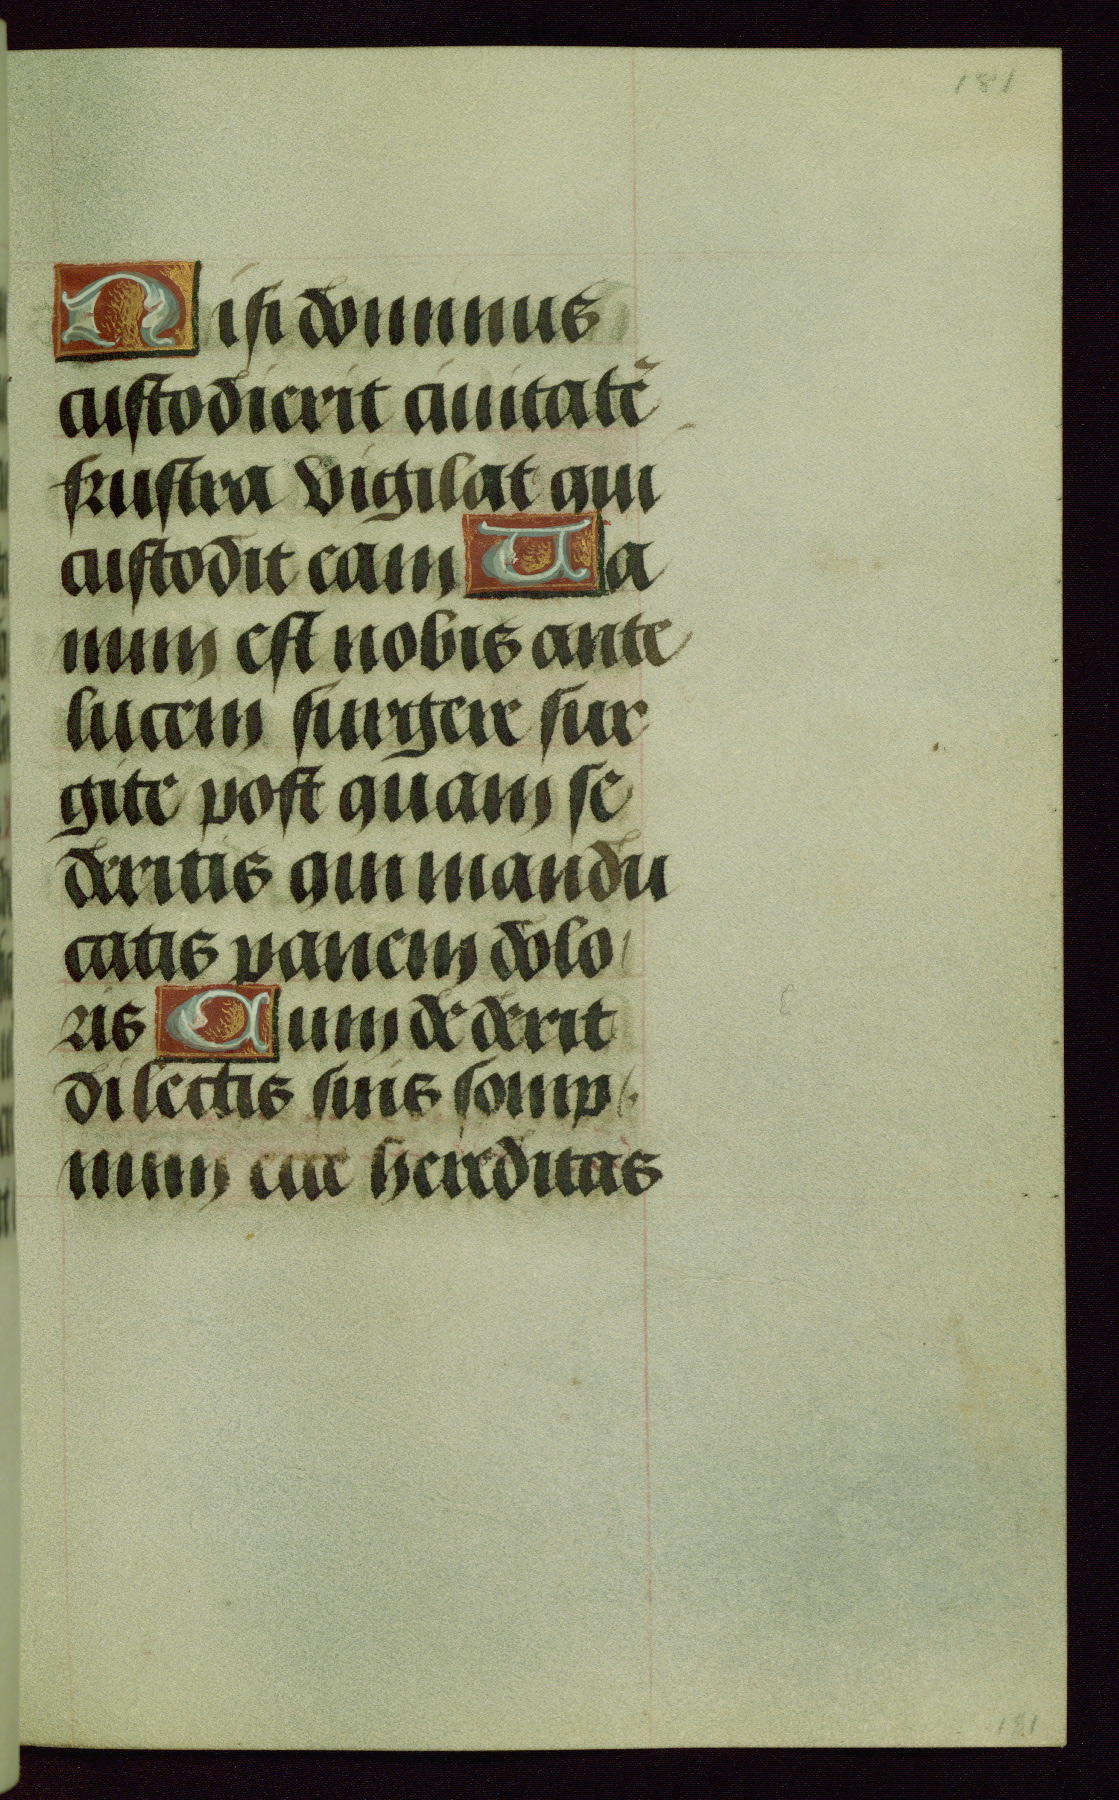 181
Nisi dominus
custodierit ciuitatē
frustra vigilat qui
custodit eam Ua
num est nobis ante
lucem surgere sur
gite post quam se
deritis qui mandu
catis panem dolo
ris Cum dederit
dilectis suis somp
num ecce hereditas
181